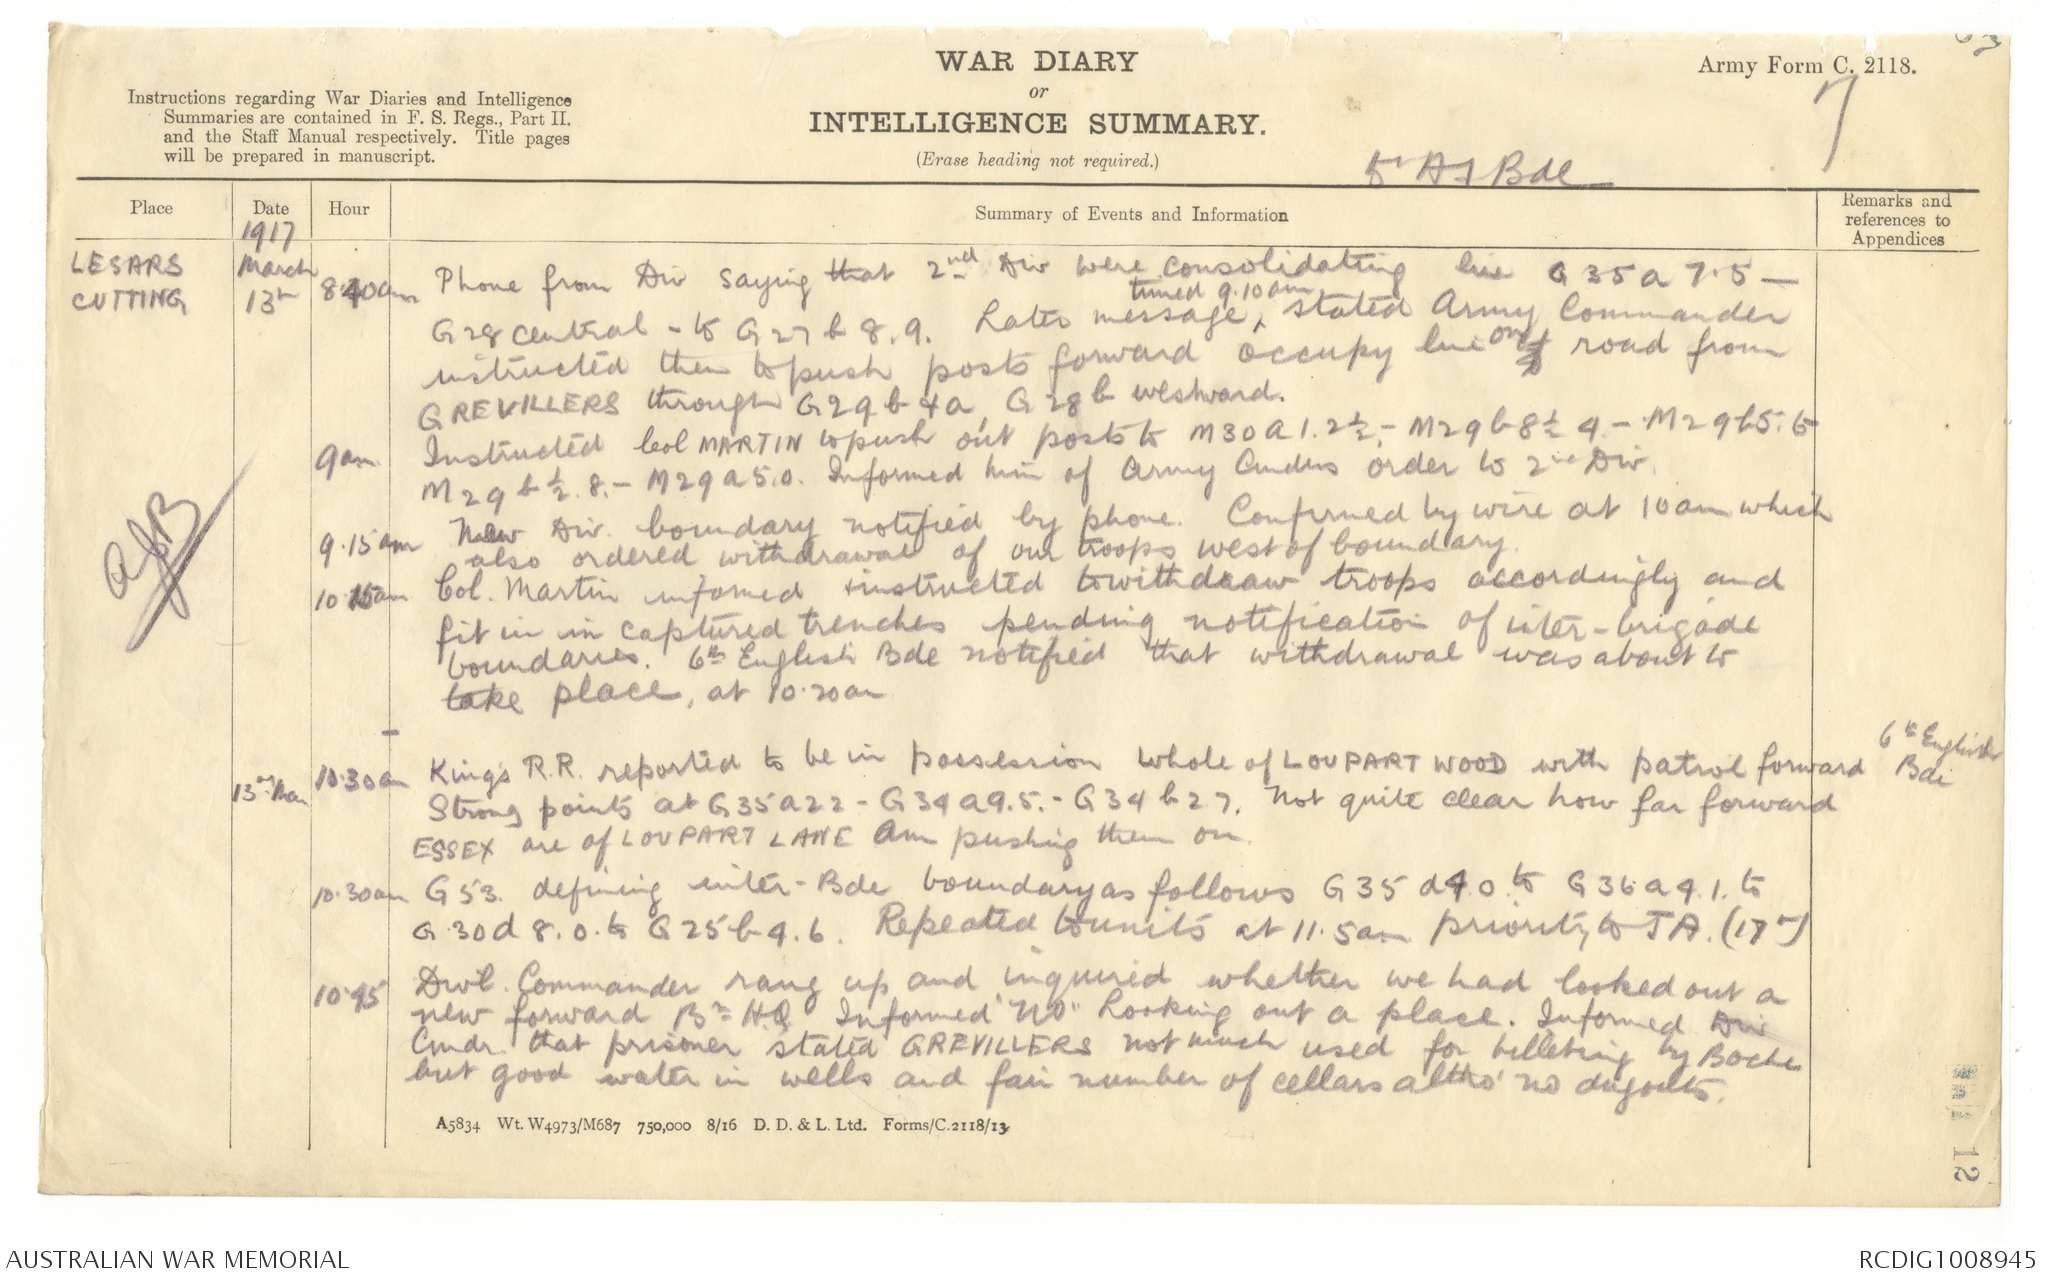 WAR DIARY
or
INTELLIGENCE SUMMARY.
(Erase heading not required.)
Army Form C. 2118.
7
Instructions regarding War Diaries and Intelligence
Summaries are contained in F. S. Regs., Part II.
and the Staff Manual respectively. Title pages
will be prepared in manuscript.
Bde
Place
Date
Hour
Summary of Events and Information
Remarks and
references to
Appendices
1917
LESARS
CUTTING
March
13th
8.40am
Phone from Div saying that 2nd Div were consolidating line G 35 a 7.5 —
G 28 central - to G 27 b 8.9. Later message, timed 9.10am stated Army Commander
instructed them to push posts forward occupy line on road from
GREVILLERS through G 29 b 4a, G 28 b westward.
9am
Instructed Col MARTIN to push out posts to M30A 1.2½ - M29 b 8½ 4 - M29 b 5. to
M29 b ½. 8. - M29 a 5.0. Informed him of Army Cmdrs order to 2nd Div.
9.15am
New Div. boundary notified by phone. Confirmed by wire at 10am which
also ordered withdrawal of our troops west of boundary.
10.15am
Col. Martin informed + instructed to withdraw troops accordingly and
fit in in captured trenches pending notification of inter-brigade
boundaries. 6th English Bde notified that withdrawal was about to
take place, at 10.20am
13th Mar
10.30am
King's R.R. reported to be in possession whole of LOUPART WOOD with patrol forward
6th English
Bde
Strong points at G35a22 - G34a9.5. - G34b27. Not quite clear how far forward
ESSEX are of LOUPART LANE Am pushing them on.
10.30am
G 53. defining inter-Bde boundary as follows G35 d 4.0. to G36 a 4.1. to
G.30d 8.0. to G25 b 4.6. Repeated to units at 11.5am priority to
10.45
Divl. Commander rang up and inquired whether we had looked out a
new forward Bn H.Q Informed "No" Looking out a place. Informed Div
Cmdr. that prisoner stated GREVILLERS not much used for billeting by Boche
but good water in wells and fair number of cellars altho' no dugouts.
A5834 Wt. W4973/M687 750,000 8/16 D. D. & L. Ltd. Forms/C.2118/13
12
AUSTRALIAN WAR MEMORIAL
RCDIG1008945